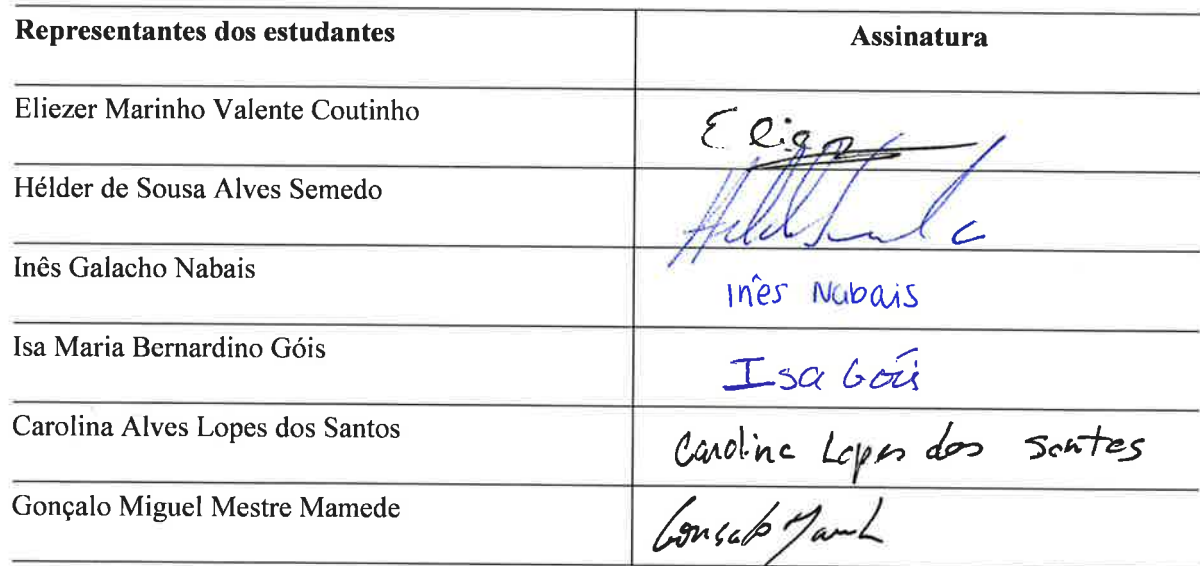 Representantes dos estudantes Assinatura
Eliezer Marinho Valente Coutinho
Hélder de Sousa Alves Semedo
Inês Galacho Nabais Inês Nabais
Isa Maria Bernardino Góis Isa Góis
Carolina Alves Lopes dos Santos Carolina Lopes dos Santos
Gonçalo Miguel Mestre Mamede Gonçalo